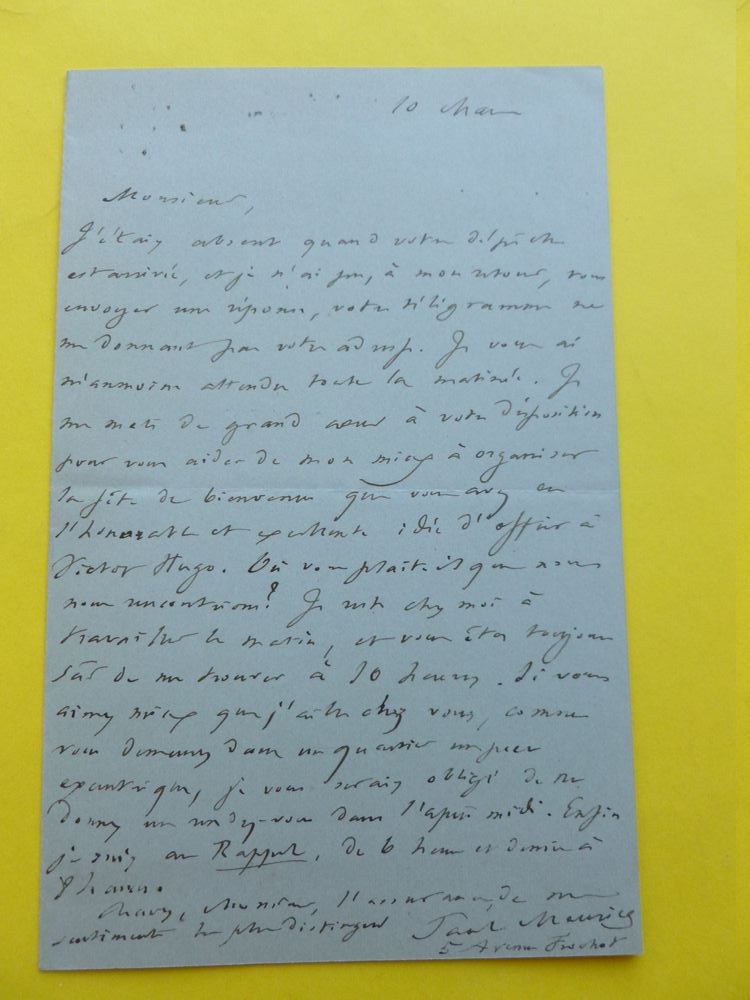 10 Mars
Monsieur,
J'étais absent quand votre dépêche
est arrivée, et je n'ai pu, à mon retour, vous
envoyer une réponse, votre télégramme ne
me donnant pas votre adresse. Je vous ai
néanmoins attendu toute la matinée. Je
me mets de grand cœur à votre disposition
pour vous aider de mon mieux à organiser
la fête de bienvenue que vous avez eu
l'honorable et excellente idée d'offrir à
Victor Hugo. Où vous plaît-il que nous
nous rencontrions? Je reste chez moi à
travailler le matin, et vous êtes toujours
sûr de me trouver à 10 heures. Si vous
aimez mieux que j'aille chez vous, comme
vous demeurez dans un quartier un peu
excentrique, je vous serais obligé de me
donner un rendez-vous dans l'après midi. Enfin
je suis au Rappel, de 6 heures et demie à
8 heures.
Agréez, Monsieur, l'assurance de mes
sentiments les plus distingués Paul Meurice
5 Avenue Frochot